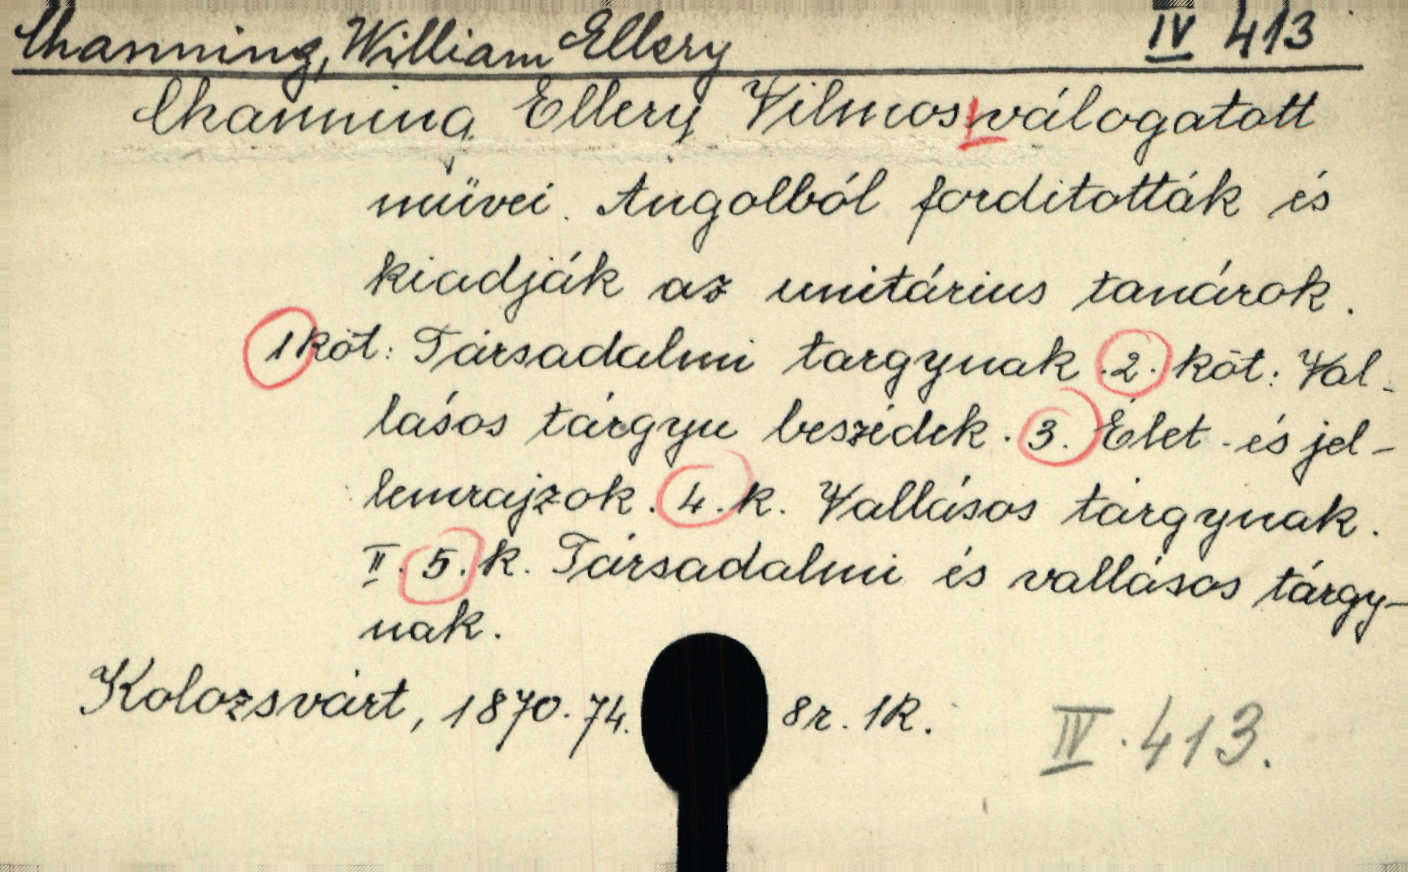 Channing, William Ellery IV 413
Channing Ellery Vilmos válogatott
művei. Angolból forditották és
kiadják az unitárius tanárok.
1 köt: Társadalmi tárgynak. 2. köt: Val-
lásos tárgyu beszédek. 3. Élet- és jel-
lemrajzok. 4. k. Vallásos tárgynak.
II. 5. k. Társadalmi és vallásos tárgy-
nak.
Kolozsvárt, 1870. 74. 8r. 1k.
IV. 413.